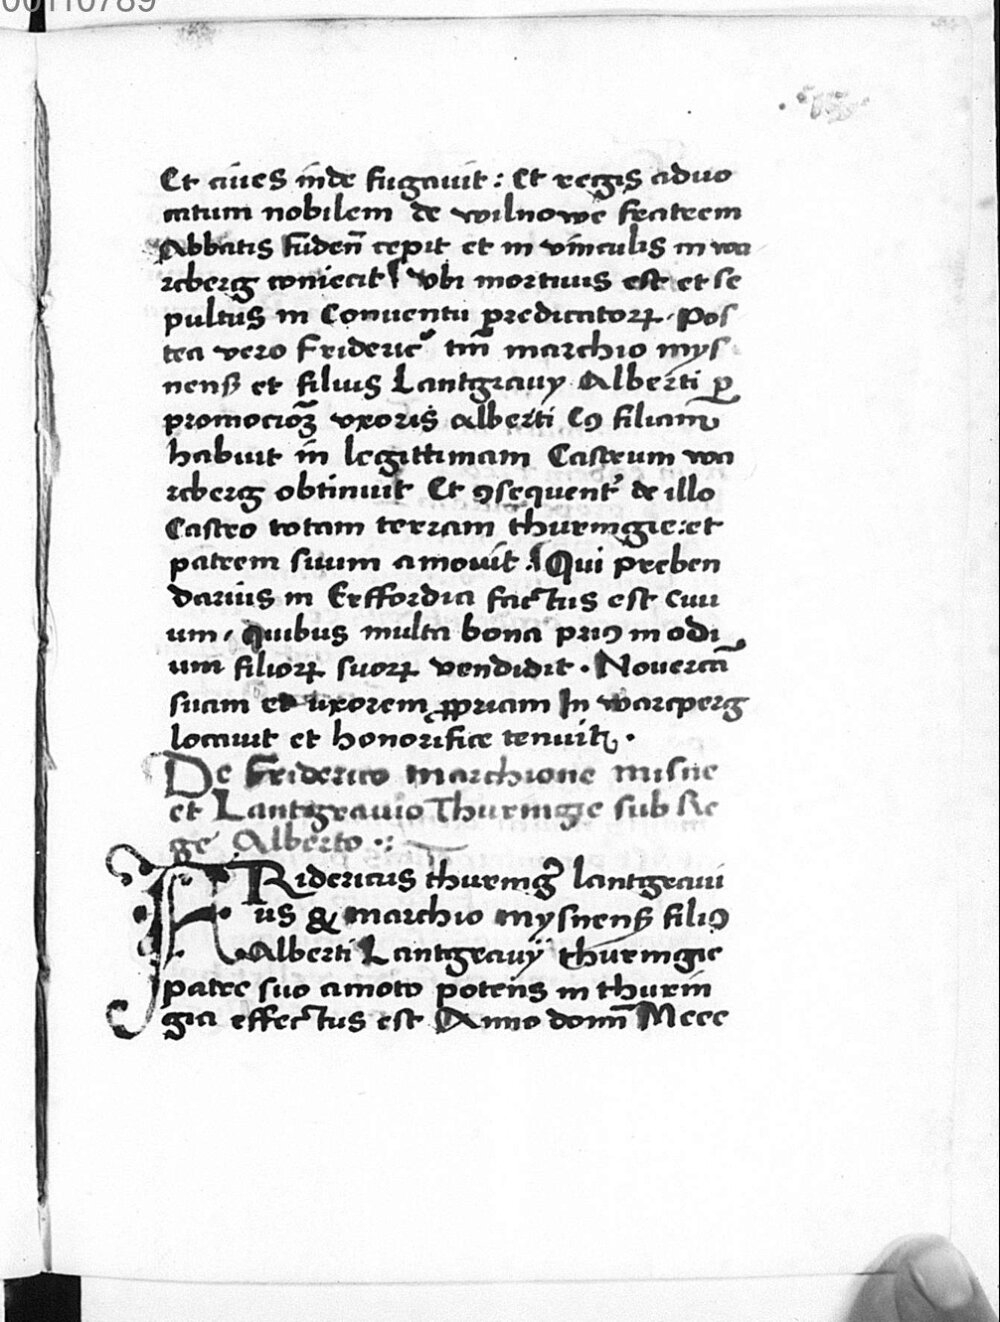 00110789
Et ciues inde fugauit : Et regis aduo
catum nobilem de wilnowe fratrem
Abbatis fuldeñ cepit et in vinculis in wa
rtberg coniecit vbi mortuus est et se
pultus in Conuentu predicatorꝝ. Pos
tea vero Frideric᷒ tm̄ marchio mys
nenß et filius Lantgrauy Alberti ꝑ
promocioꝫ vxoris alberti Cꝰ filiam
habuit in legittimam Castrum wa
rtberg obtinuit Et ꝯsequent᷒ de illo
Castro totam terram thuringie : et
patrem suum amouit . Qui preben
darius in Erffordia factus est Ciui
um, quibus multa bona priꝰ in odi
um filiorꝝ suorꝝ vendidit . Nouercā
suam et uxorem ꝓpriam In wartperg
locauit et honorifice tenuit .
De Friderico marchione misne
et Lantgrauio Thuringie sub Re
ge Alberto .:
FRidericus thuring᷒ lantgraui
us & marchio mysnenß filiꝰ
Alberti Lantgrauÿ thuringie
patre suo amoto potens in thurin
gia effectus est Anno domī Mccc